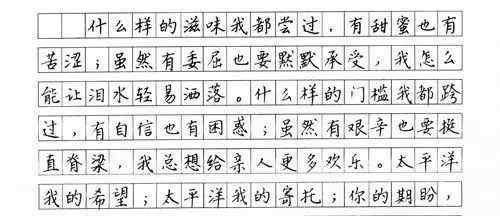 什么样的滋味我都尝过，有甜蜜也有
苦涩；虽然有委屈也要默默承受，我怎么
能让泪水轻易洒落。什么样的门槛我都跨
过，有自信也有困惑；虽然有艰辛也要挺
直脊梁，我总想给亲人更多欢乐。太平洋
我的希望；太平洋我的寄托；你的期盼，